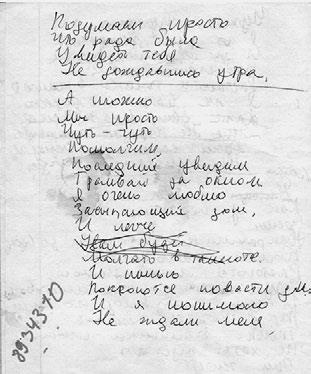 Подумаем просто
Что рада была
Увидеть тебя
Не дождавшись утра.
А можно
Мы просто
Чуть-чуть
Помолчим
Последний увидим
Трамвай за окном
Я очень люблю
Засыпающий дом,
И легче
Нам будет
Молчать в темноте.
И
Покроются
И я
Не ждали меня
8934370